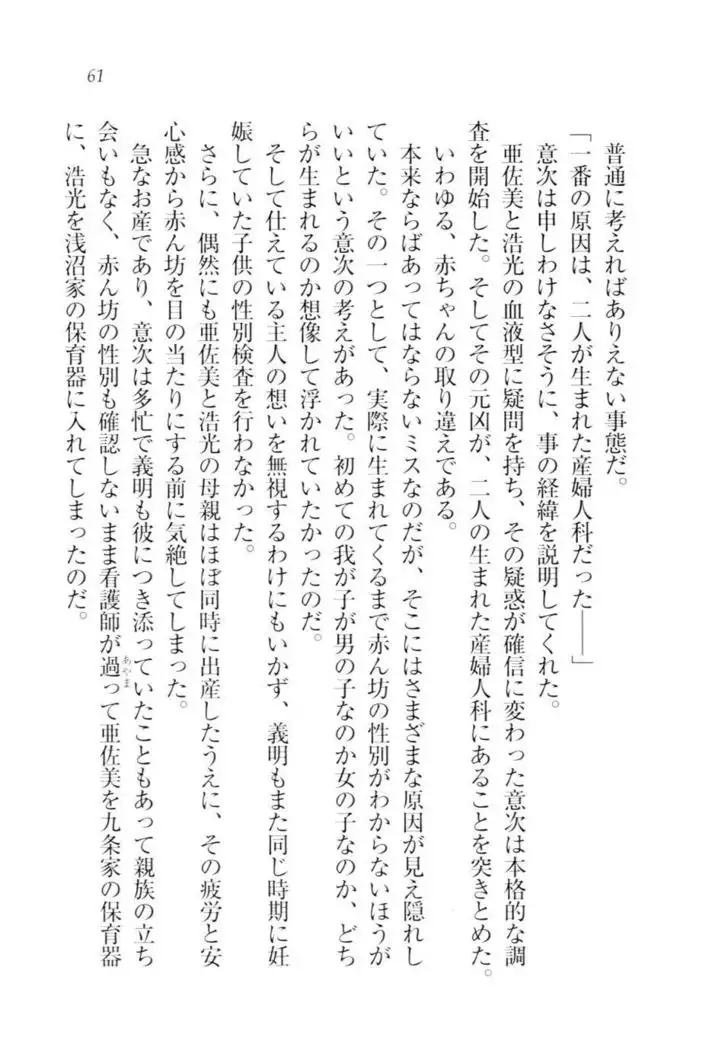 61
普通に考えればありえない事態だ。
「一番の原因は、二人が生まれた産婦人科だった――」
意次は申しわけなさそうに、事の経緯を説明してくれた。
亜佐美と浩光の血液型に疑問を持ち、その疑惑が確信に変わった意次は本格的な調
査を開始した。そしてその元凶が、二人の生まれた産婦人科にあることを突きとめた。
いわゆる、赤ちゃんの取り違えである。
本来ならばあってはならないミスなのだが、そこにはさまざまな原因が見え隠れし
ていた。その一つとして、実際に生まれてくるまで赤ん坊の性別がわからないほうが
いいという意次の考えがあった。初めての我が子が男の子なのか女の子なのか、どち
らが生まれるのか想像して浮かれていたかったのだ。
そして仕えている主人の想いを無視するわけにもいかず、義明もまた同じ時期に妊
娠していた子供の性別検査を行わなかった。
さらに、偶然にも亜佐美と浩光の母親はほぼ同時に出産したうえに、その疲労と安
心感から赤ん坊を目の当たりにする前に気絶してしまった。
急なお産であり、意次は多忙で義明も彼につき添っていたこともあって親族の立ち
会いもなく、赤ん坊の性別も確認しないまま看護師が過って亜佐美を九条家の保育器
あやま
に、浩光を浅沼家の保育器に入れてしまったのだ。